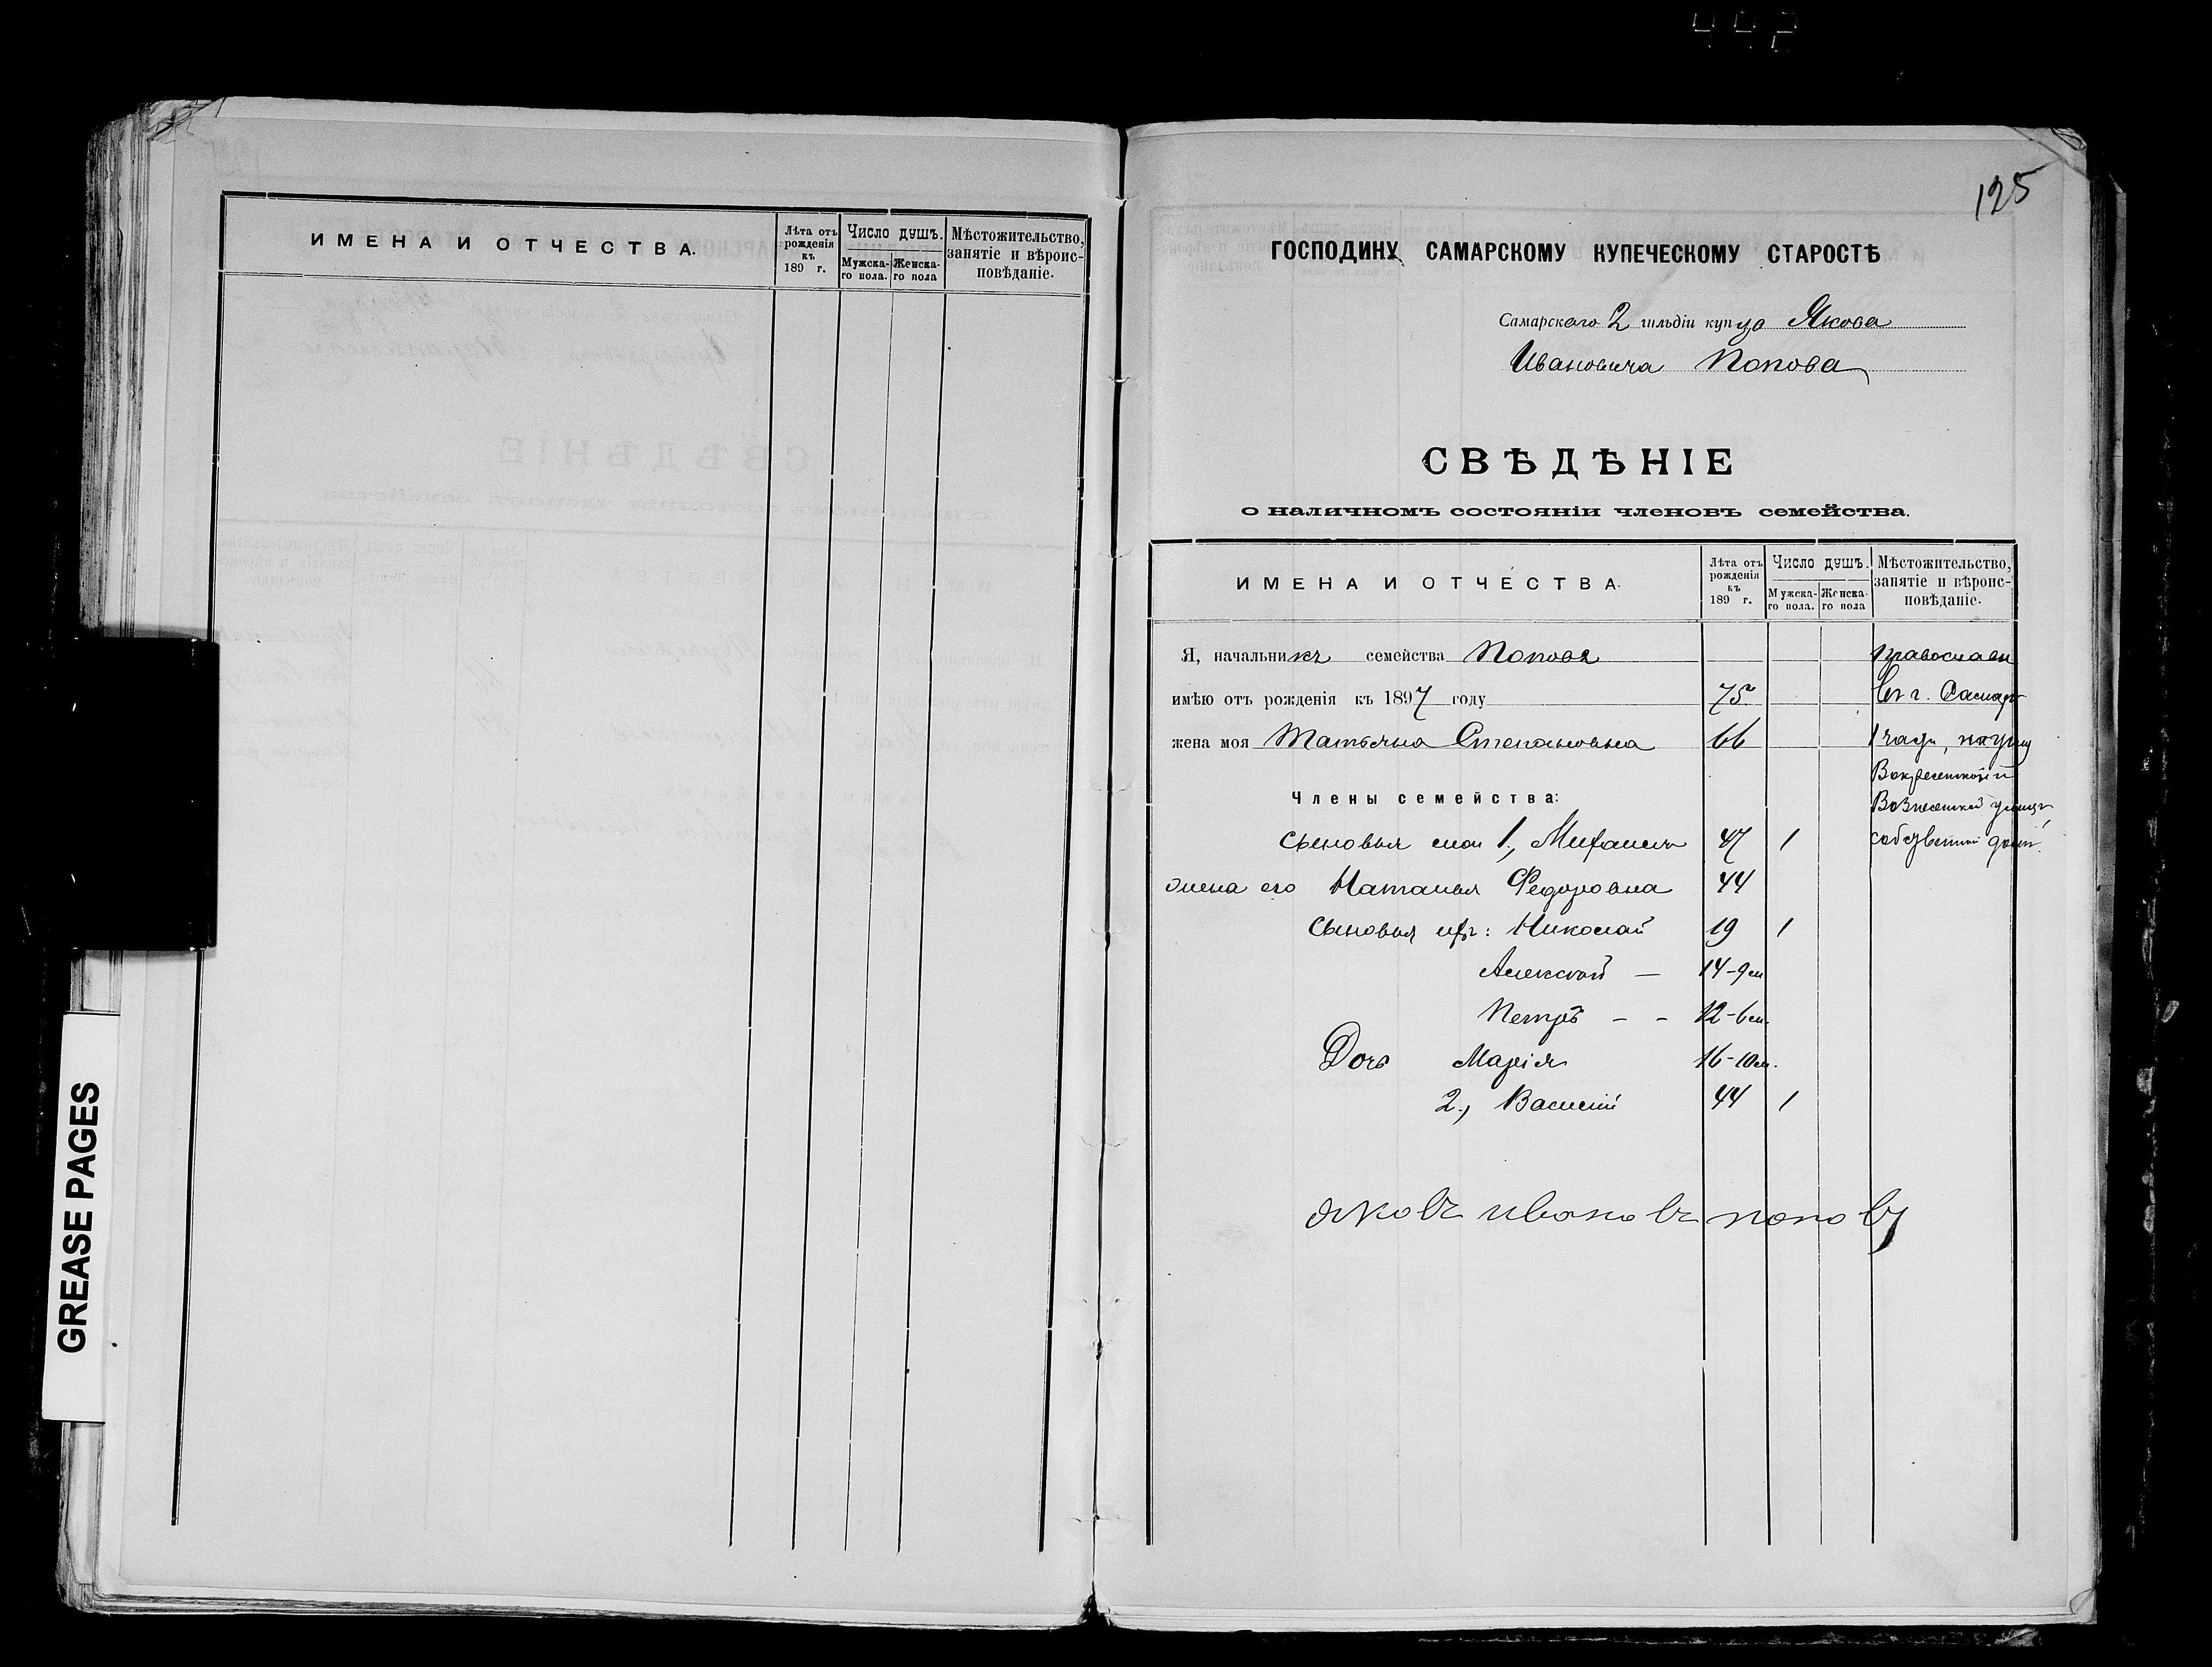 ИМЕНА И ОТЧЕСТВА.
Лѣта отъ рожденія къ 189 г.
Число душъ.
Мужска-го пола.
Женска-го пола
Мѣстожительство, занятіе и вѣроис-повѣданіе.
GREASE PAGES
125
ГОСПОДИНУ САМАРСКОМУ КУПЕЧЕСКОМУ СТАРОСТѢ
Самарскаго 2 гильдіи купца Якова
Ивановича Попова
СВѢДѢНІЕ
о наличномъ состояніи членовъ семейства.
ИМЕНА И ОТЧЕСТВА.
Лѣта отъ рожденія къ 189 г.
Число душъ.
Мужска-го пола.
Женска-го пола
Мѣстожительство, занятіе и вѣроис-повѣданіе.
Я, начальникъ семейства Поповъ православн
имѣю отъ рожденія къ 1897 году 75. Въ г. Самарѣ
жена моя Татьяна Степановна 66 1 части, на углу
Воскресенской и
Члены семейства:
Вознесенской улицъ,
Сыновья мои 1., Михаилъ 47 1 собственный домъ.
жена его Наталья Федоровна 44
Сыновья ихъ: Николай 19 1
Алексѣй — 14-9 м
Петръ — — 12-6 м.
Дочь Марія 16-10 м.
2., Василій 44 1
яковъ ивановъ поповъ